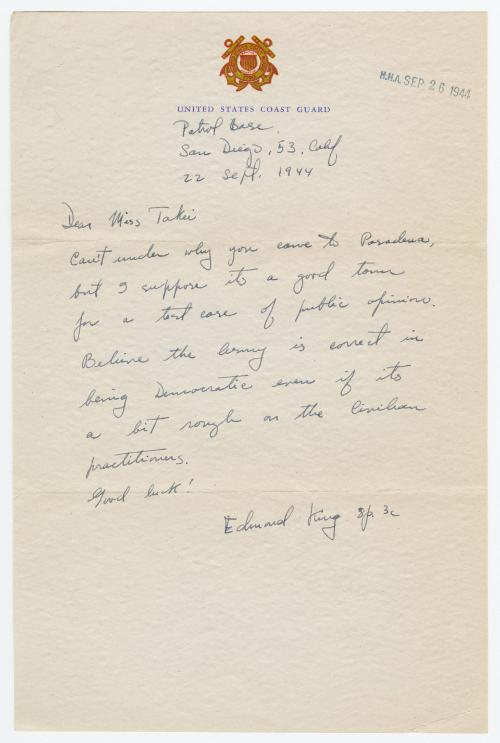 H.H.A. SEP 26 1944
UNITED STATES COAST GUARD
Patrol Base.
San Diego, 53, Calif
22 Sept. 1944
Dear Miss Takei
Can't under why you came to Pasadena,
but I suppose its a good town
for a test case of public opinion.
Believe the Army is correct in
being Democratic even if its
a bit rough on the Civilian
practitioners.
Good luck!
Edmond King Sp. 3c